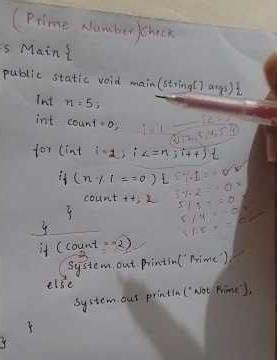 (Prime Number) Check
s Main {
public static void main(string[] args) {
int n = 5;
int count = 0;
i = 1
1, 2, 3, 4, 5, 6
for (int i = 1; i <= n; i++) {
if (n % i == 0) { 5 % 1 == 0
5 % 2 == 0 x
count ++; 2 5 % 3 == 0 x
} 5 % 4 == 0 x
} 5 % 5 == 0
if (count == 2)
System.out.println('Prime');
else
System.out.println("Not Prime');
}
}